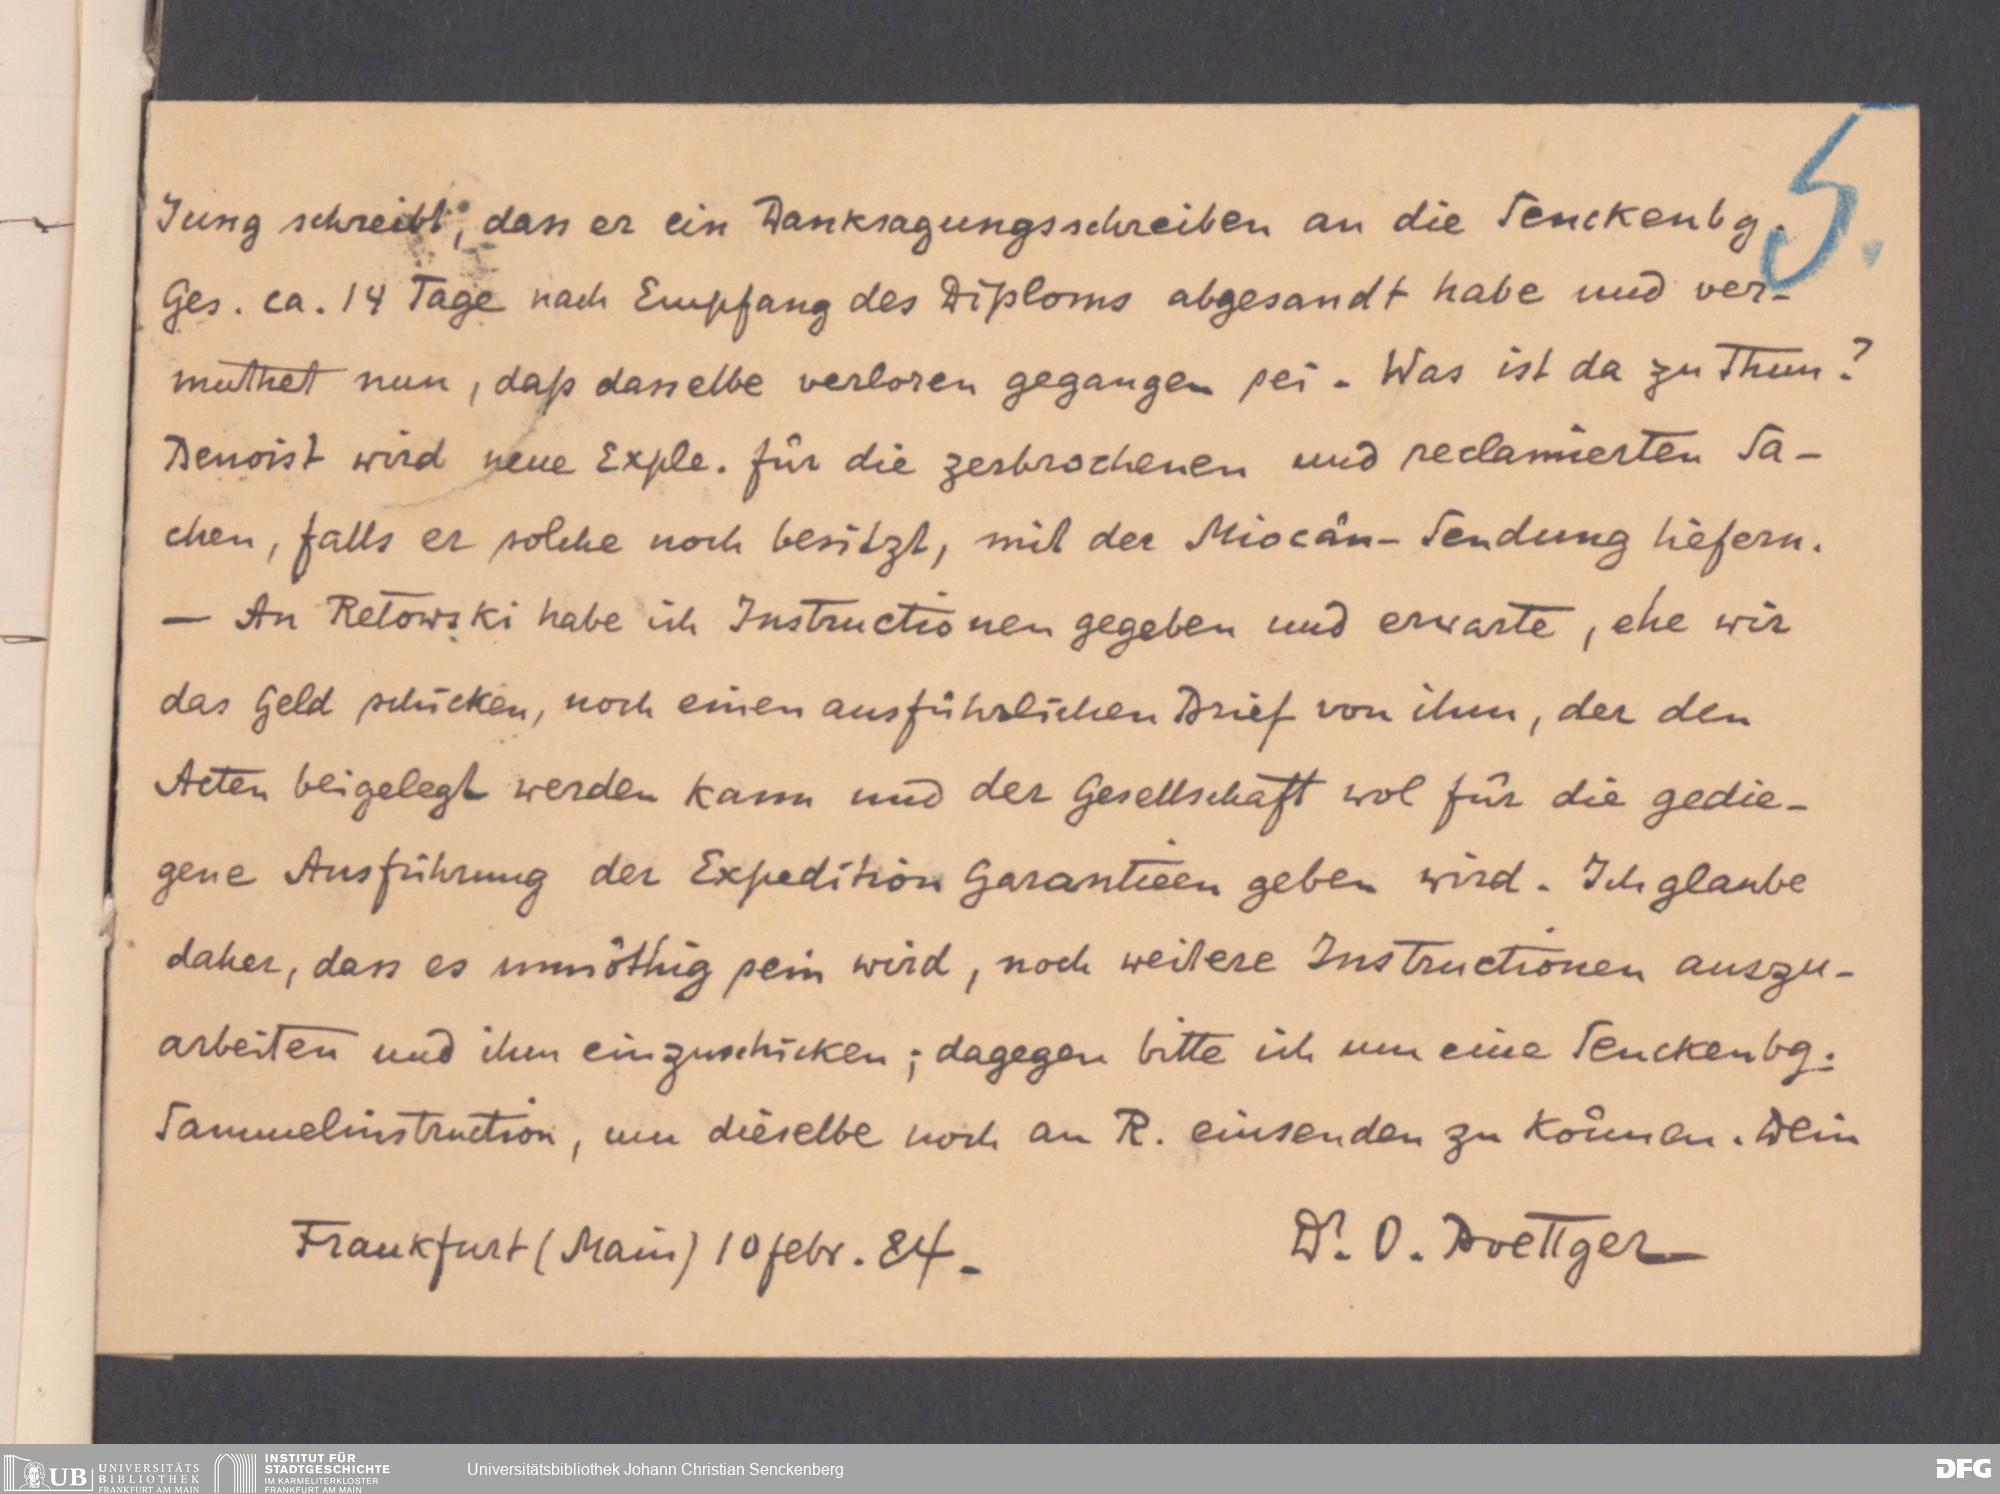 5.
Jung schreibt, dass er ein Danksagungsschreiben an die Senckenbg.
Ges. ca. 14 Tage nach Empfang des Diploms abgesandt habe und ver-
muthet nun, daß dasselbe verloren gegangen sei. Was ist da zu Thun?
Benoist wird neue Exple. für die zerbrochenen und reclamierten Sa-
chen, falls er solche noch besitzt, mit der Miocän-Sendung liefern.
— An Retowski habe ich Instructionen gegeben und erwarte, ehe wir
das Geld schicken, noch einen ausführlichen Brief von ihm, der den
Acten beigelegt werden kann und der Gesellschaft wol für die gedie-
gene Ausführung der Expedition Garantieen geben wird. Ich glaube
daher, dass es unnöthig sein wird, noch weitere Instructionen auszu-
arbeiten und ihm einzuschicken; dagegen bitte ich um eine Senckenbg.
Sammelinstruction, um dieselbe noch an R. einsenden zu können. Dein
Frankfurt (Main) 10 febr. 84. Dr. O. Boettger
UB UNIVERSITÄTS
BIBLIOTHEK
FRANKFURT AM MAIN
INSTITUT FÜR
STADTGESCHICHTE
IM KARMELITERKLOSTER
FRANKFURT AM MAIN
Universitätsbibliothek Johann Christian Senckenberg
DFG